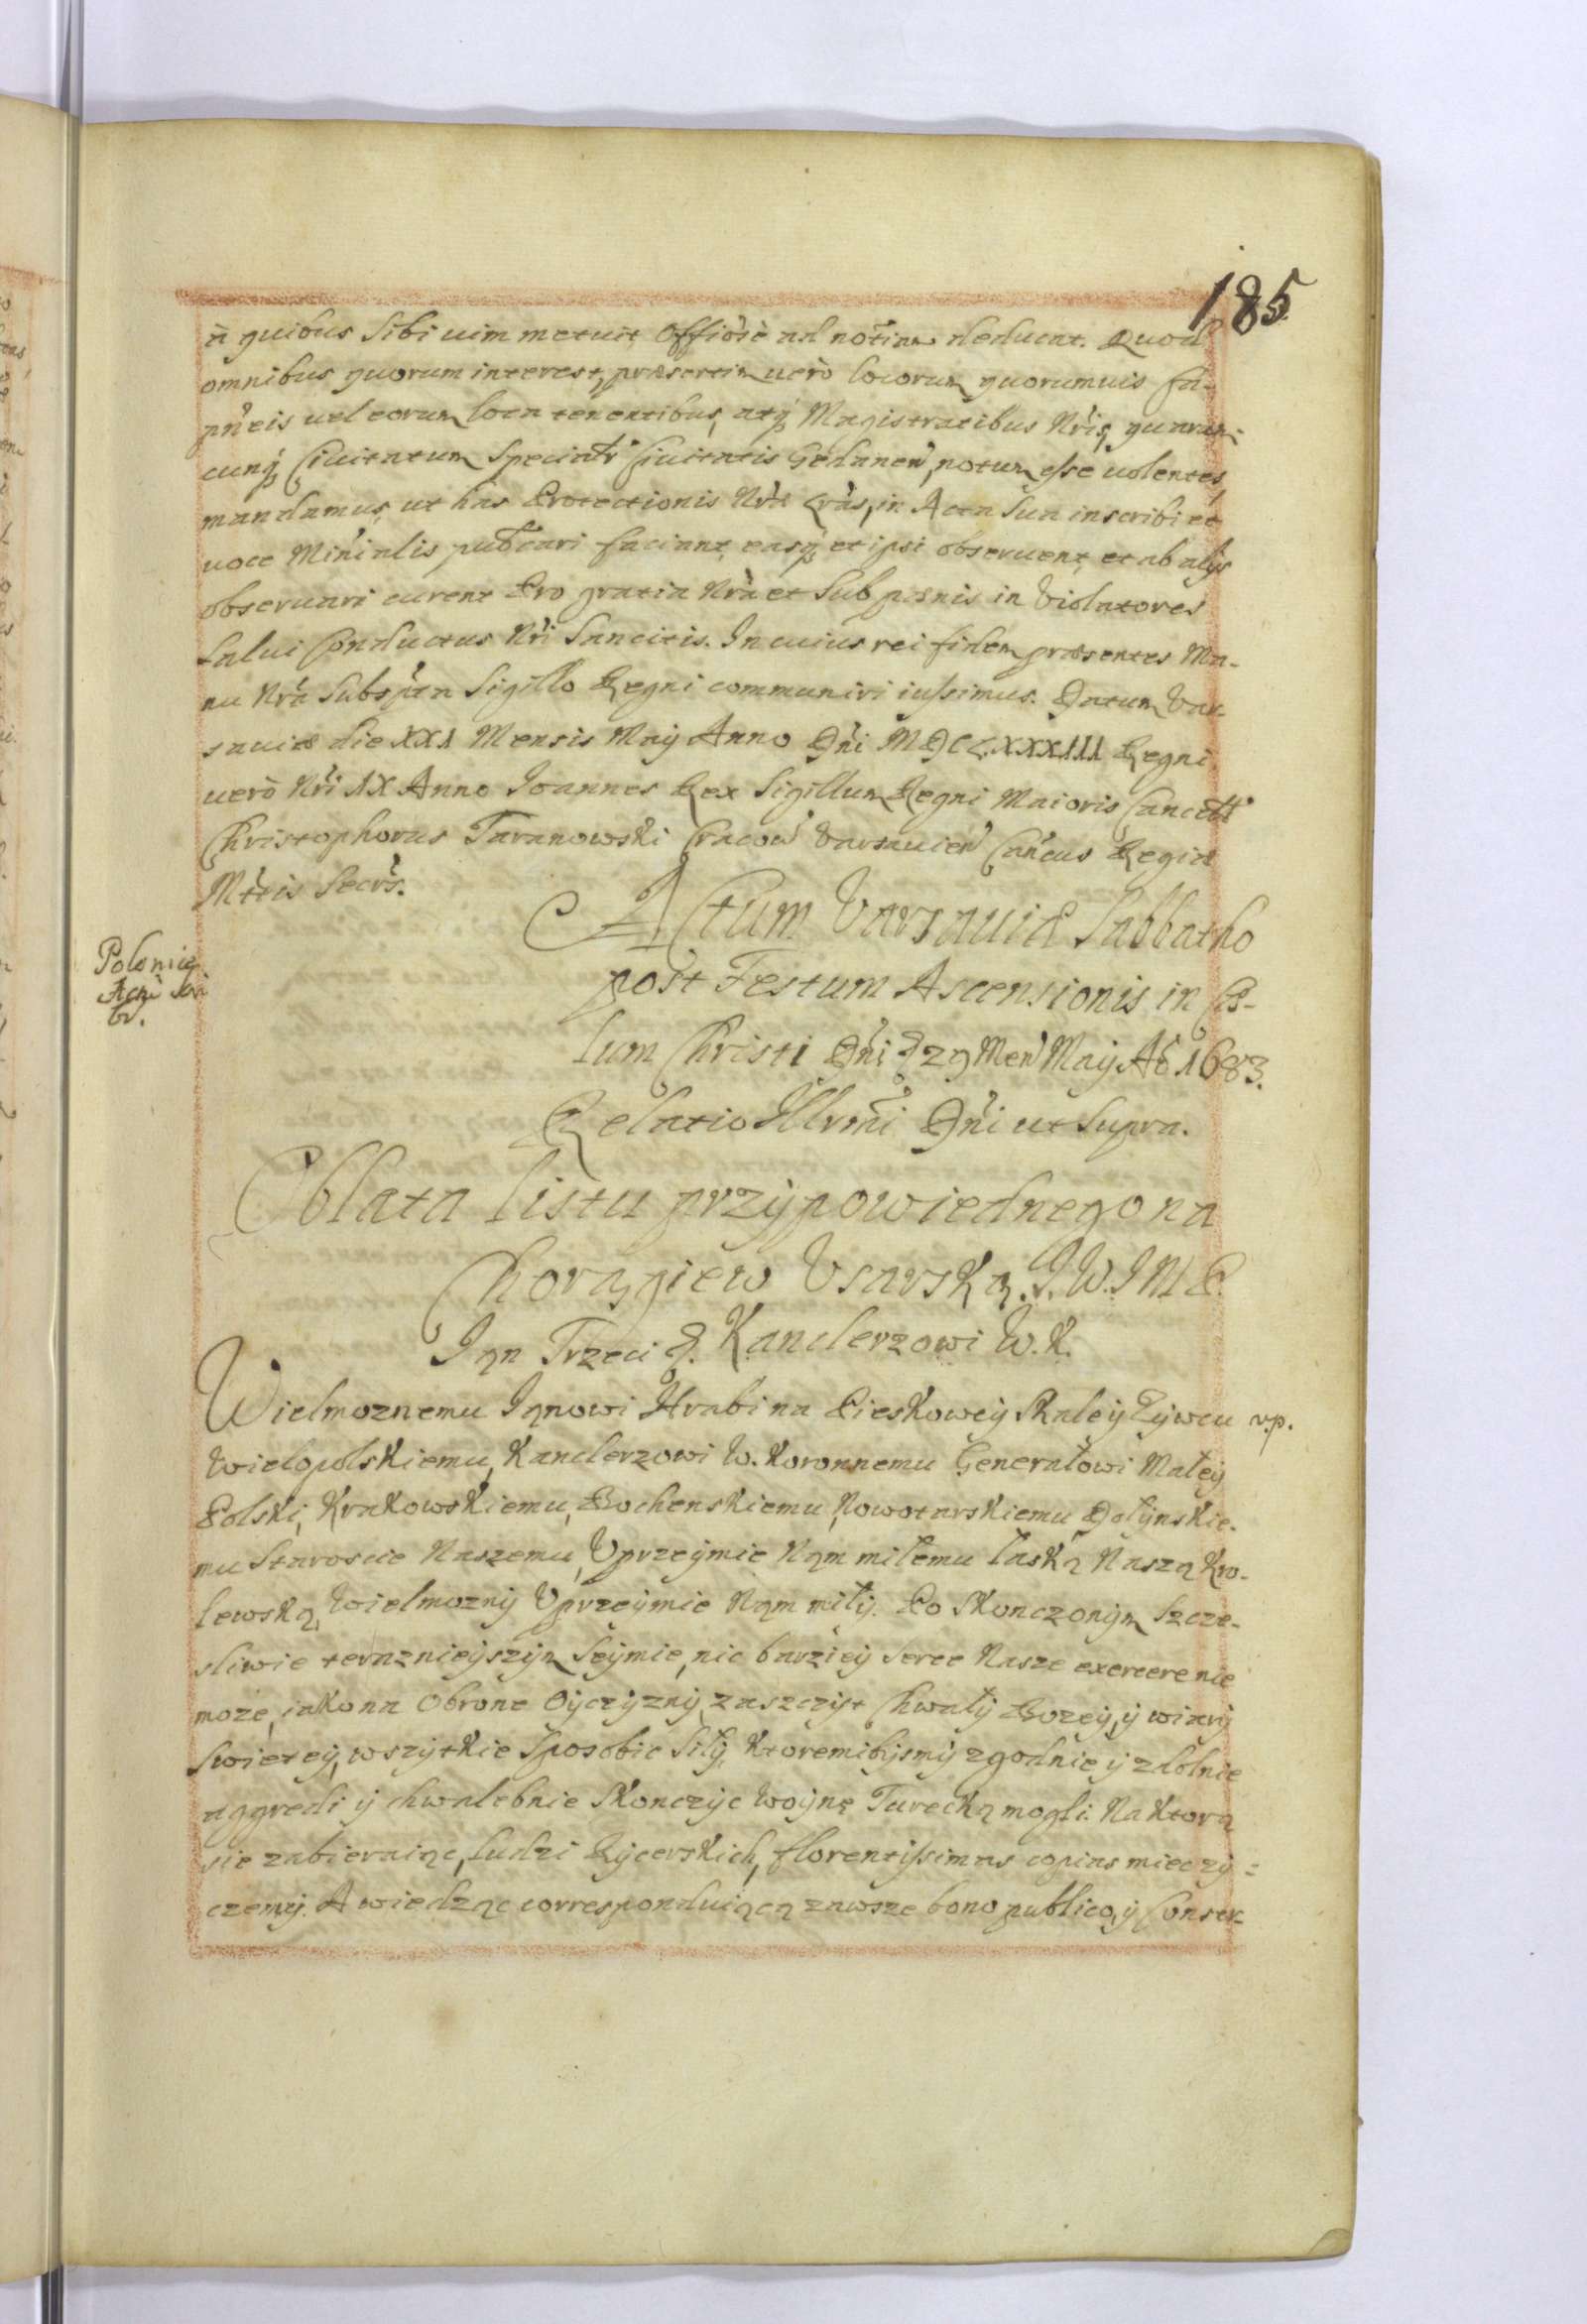 185
à quibus Sibi uim metuit Officiosè ad notiam deducat. Quod
omnibus quorum interest, præsertim uerò locorum quorumuis Ca-
pneis uel eorum loca tenentibus, atq Magistratibus Nris, quarum-
cunq Ciuitatum Specialr Ciuitatis Gedanen, notum esse uolentes,
mandamus, ut has Protectionis Nræ Lras, in Acta Sua inscribi et
uoce Minialis publicari faciant, easq et ipsi obseruent, et ab alijs
obseruari curent Pro gratia Nra et Sub pænis in Violatores
Salui Conductus Nri Sancitis. In cuius rei fidem præsentes Ma-
nu Nra Subspta Sigillo Regni communiri iussimus. Datum Var-
sauiæ die XXI Mensis Maÿ Anno Dni MDCLXXXIII Regni
uerò Nri IX Anno Joannes Rex Sigillum Regni Maioris Cancell
Christophorus Taranowski Cracou Varsauien Cancus Regiæ
Mttis Secrs.
Actum Varsauiæ Sabbatho
post Festum Ascensionis in Cæ-
lum Christi Dni d 29 Men Maÿ Ao 1683.
Polonię
Relatio Illrmi Dni ut Supra.
Oblata listu przÿpowiednego na
Chorągiew Vsarską J. W. JMP.
Jan Trzeci &. Kanclerzowi W. K.
Wielmoznemu Janowi Hrabi na Pieskoweÿ Skale ÿ Zÿwcu
vp.
Wielopolskiemu, Kanclerzowi W. Koronnemu Generałowi Małeÿ
Polski, Krakowskiemu, Bochenskiemu, Nowotarskiemu Dolÿnskie-
mu Staroscie Naszemu, Vprzeÿmie Nam miłemu łaską Naszą Kro-
lewską, Wielmoznÿ Vprzeÿmie Nam miłÿ. Po Skonczonÿm Szcze-
sliwie teraznieÿszÿm Seÿmie, nic barzieÿ Serce Nasze exercere nie
moze, iako na Obrone Oÿczÿznÿ, zaszczÿt Chwałÿ Bozeÿ, ÿ wiarÿ
Swieteÿ, wszÿtkie Sposobic Siłÿ, Ktoremibÿsmÿ zgodnie ÿ zdolnie
aggredi ÿ chwalebnie Skonczÿc Woÿnę Turecką mogli. Na Ktorą
sie zabieraiąc, ludzi Rÿcerskich, florentissimas copias miec zÿ-
czemÿ. A wiedząc correspondwiącą zawsze bono publico, ÿ Conser-